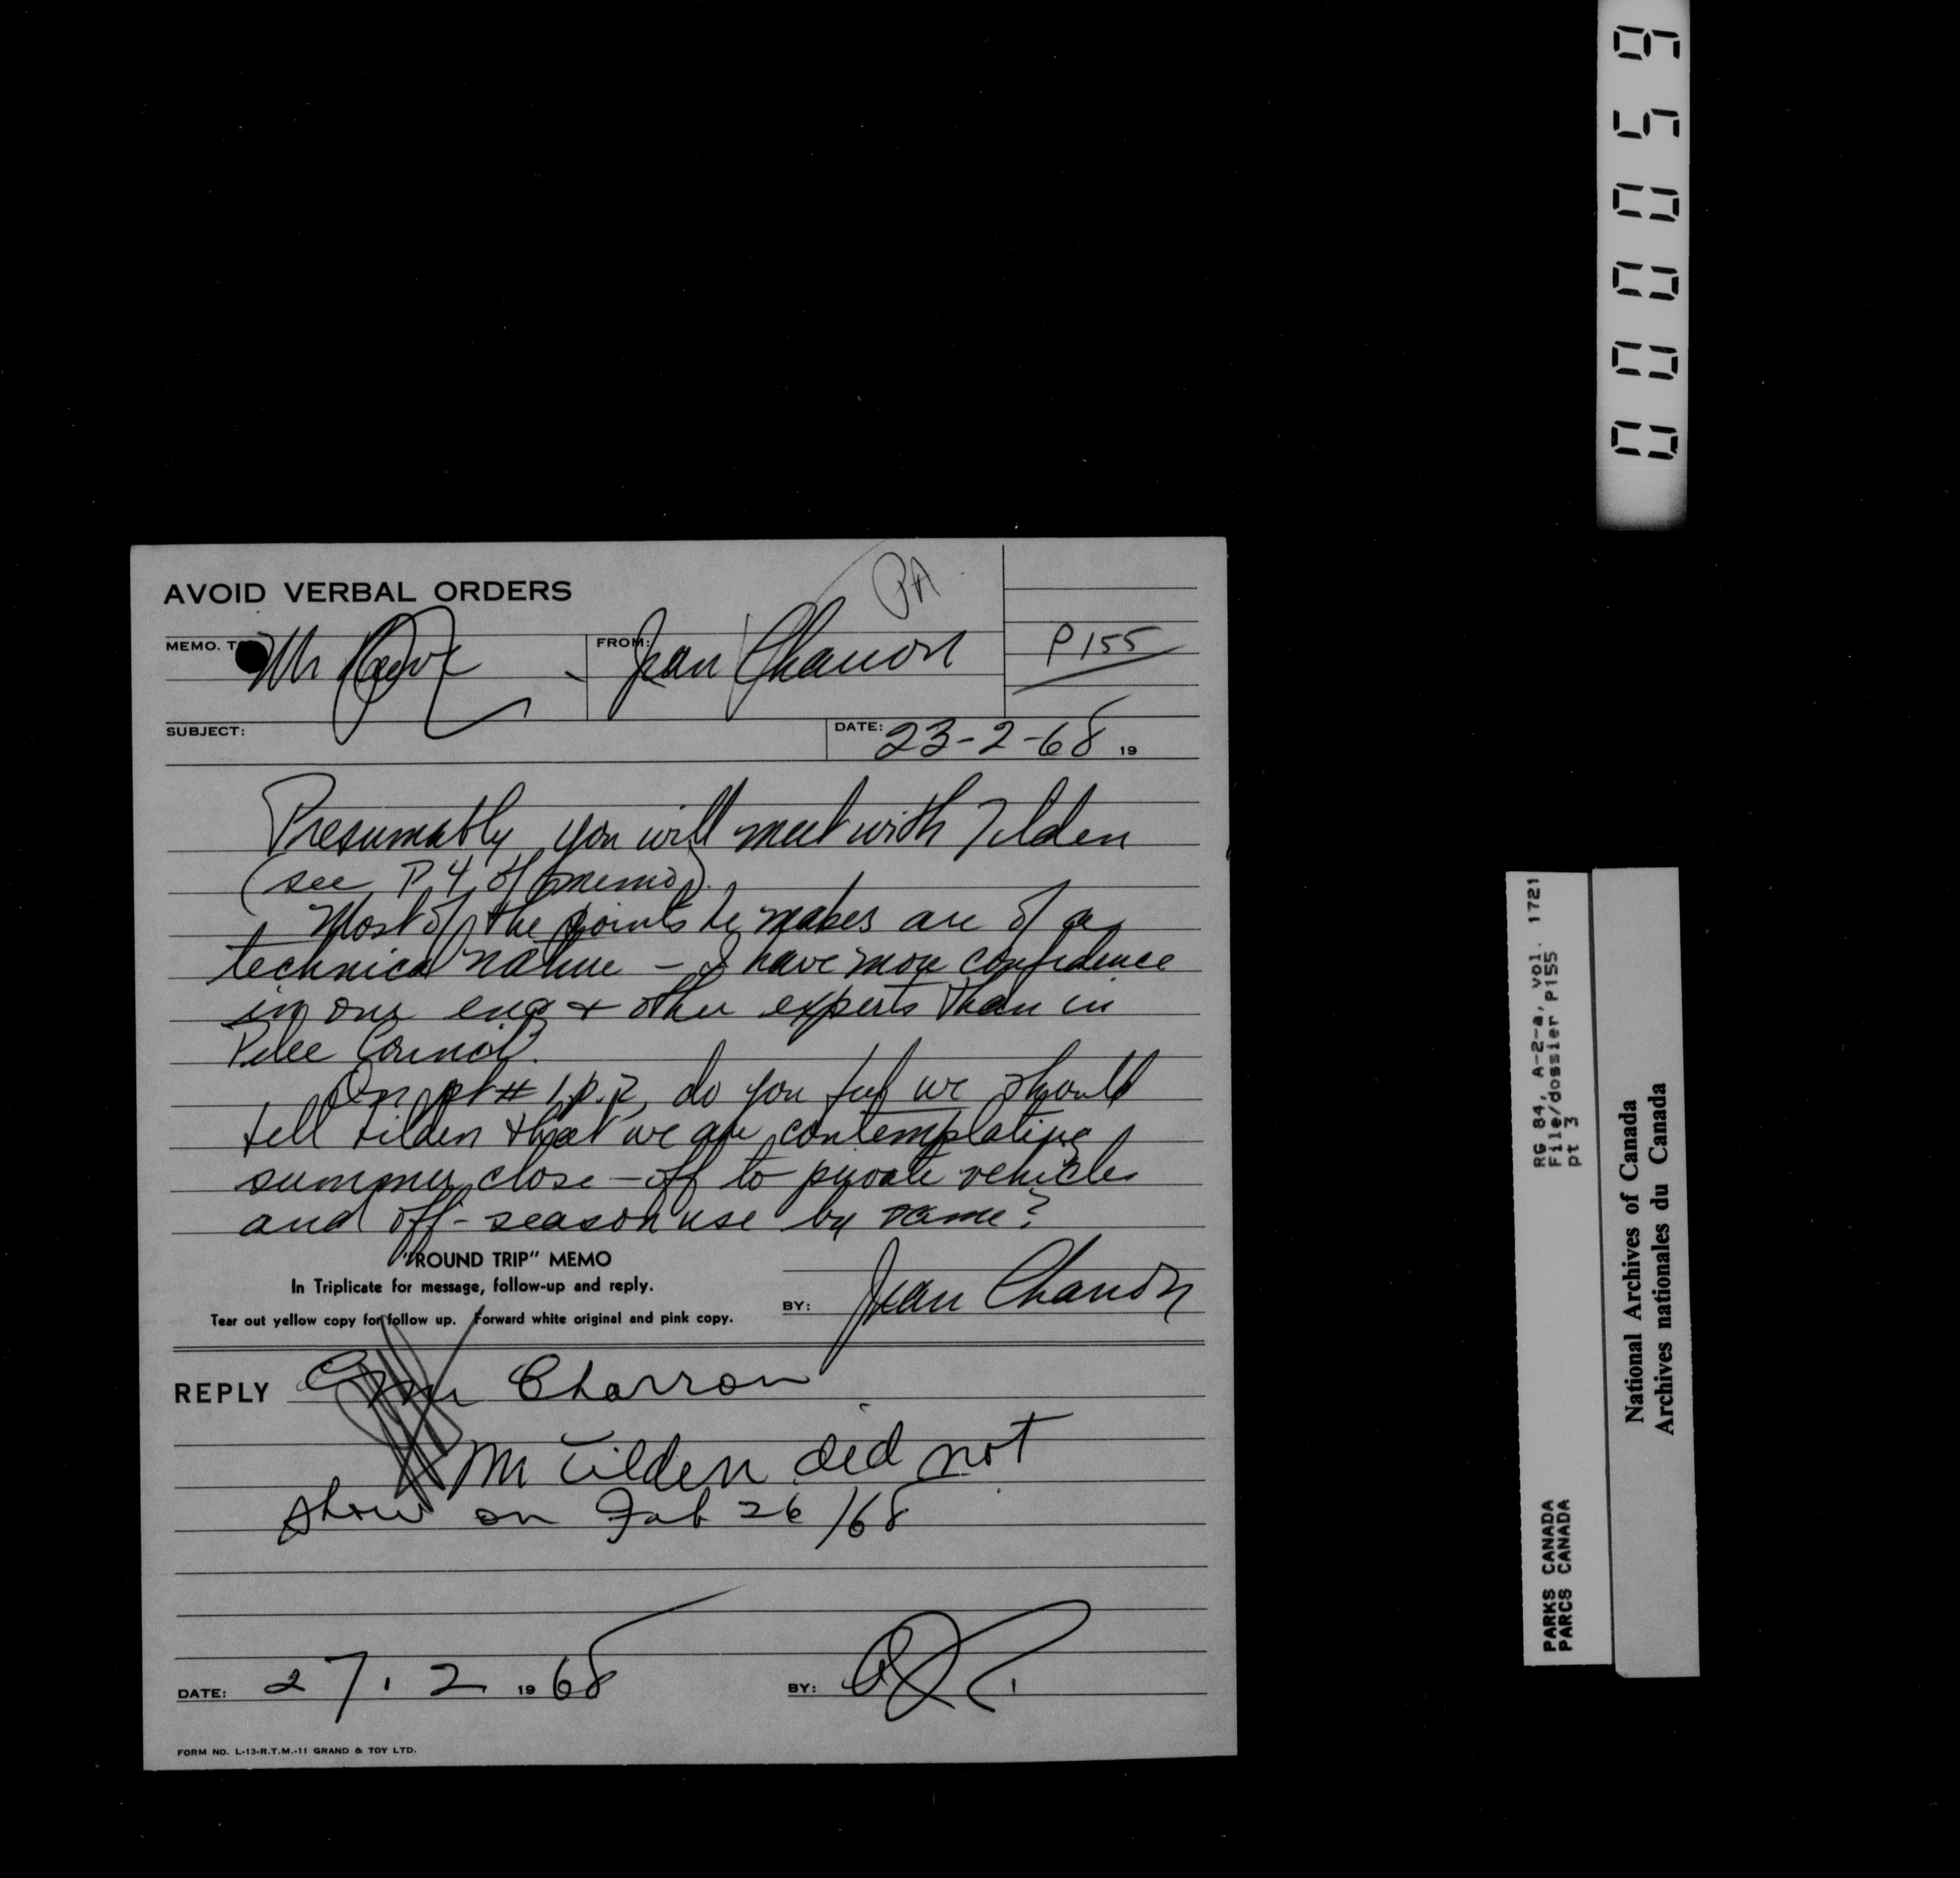 AVOID VERBAL ORDERS
PA
MEMO. T
Mr
FROM:
Jean Charron
P155
SUBJECT:
DATE: 23-2-68 19
Presumably you will meet with Tilden
(see P. 4 of memo).
Most of the points he makes are of a
technical nature - I have more confidence
in our eng & other experts than in
Pelee Council.
On pt # 1, p. 2, do you feel we should
tell Tilden that we are contemplating
summer close-off to private vehicles
and off-season use by same?
"ROUND TRIP" MEMO
In Triplicate for message, follow-up and reply.
Tear out yellow copy for follow up. Forward white original and pink copy.
BY: Jean Charron
REPLY Mr Charron
Mr Tilden did not
show on Feb 26/68
DATE: 27.2 1968
BY:
FORM NO. L-13-R.T.M.-11 GRAND & TOY LTD.
000059
RG 84, A-2-a, vol. 1721
File/dossier P155
pt 3
PARKS CANADA
PARCS CANADA
National Archives of Canada
Archives nationales du Canada